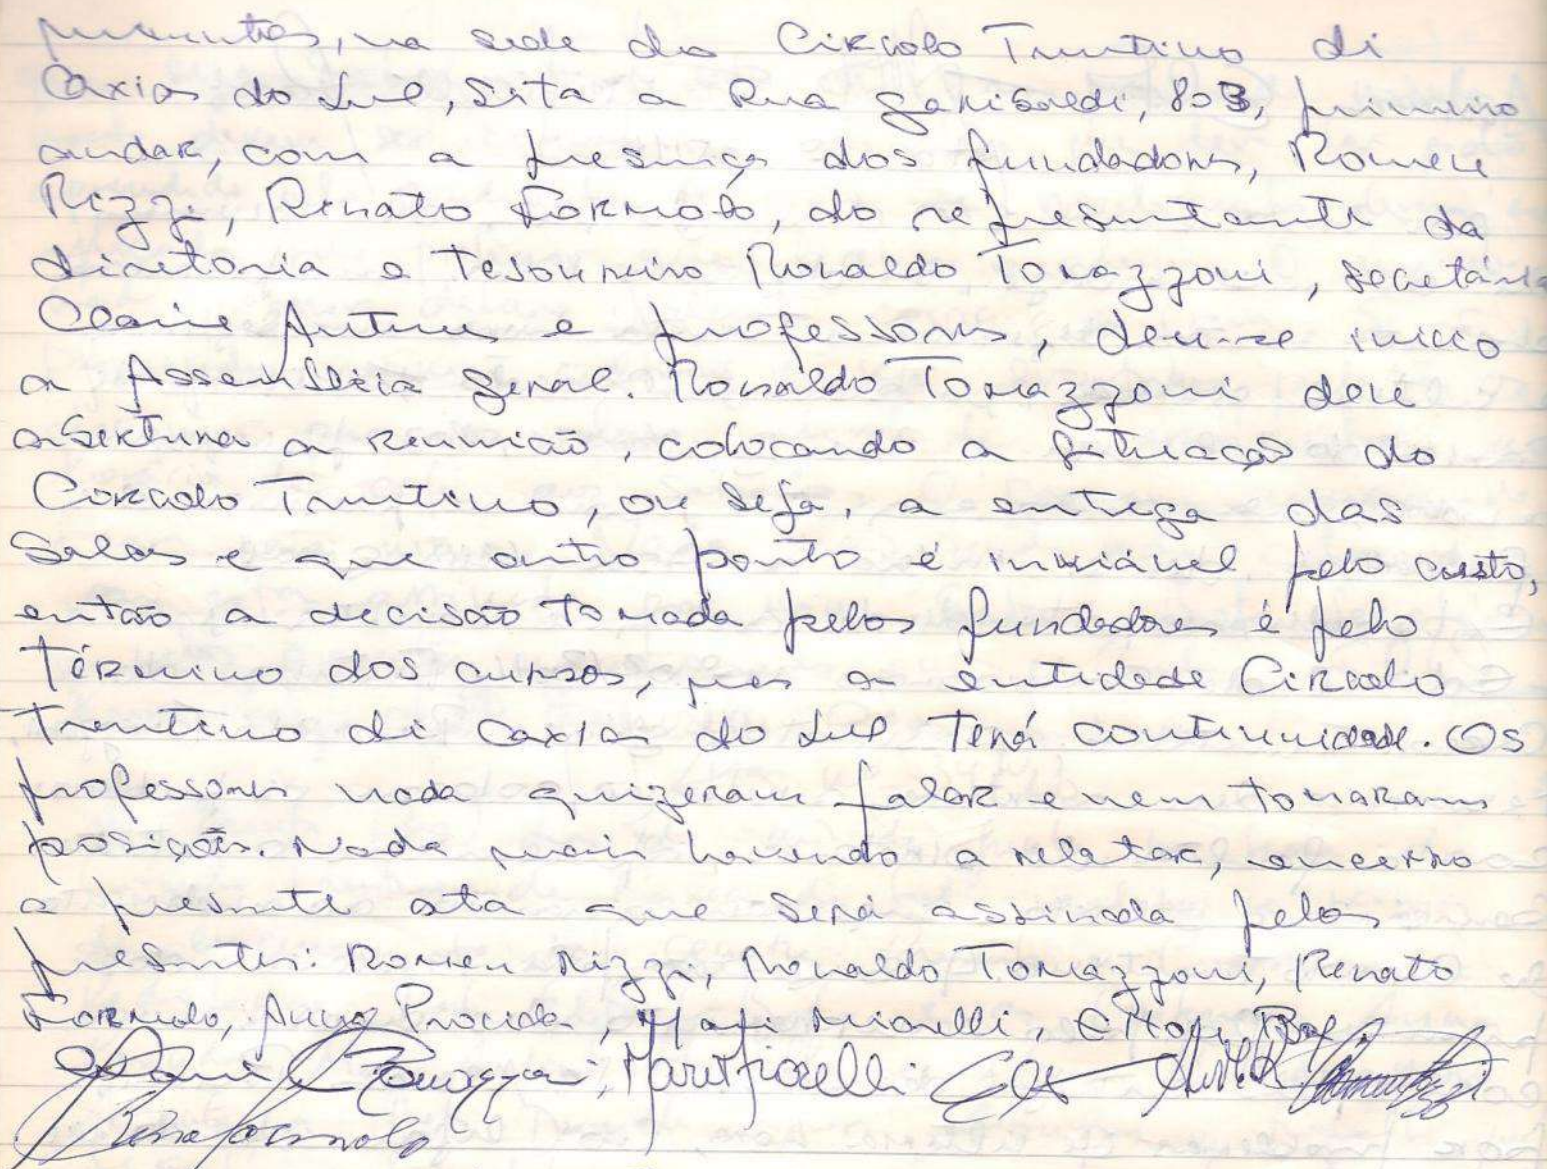 presentes, na sede do Circolo Trentino di
Caxias do Sul, sita a Rua Garibaldi, 803, primeiro
andar, com a presença dos fundadores, Romeu
Rizzi, Renato Formolo, do representante da
diretoria o tesoureiro Ronaldo Tomazzoni, secretária
Claire Antunes e professores, deu-se inicio
a Assembléia Geral. Ronaldo Tomazzoni deu
abertura a reunião, colocando a situação do
Circolo Trentino, ou seja, a entrega das
salas e que outro ponto é inviável pelo custo,
então a decisão tomada pelos fundadores é pelo
término dos cursos, mas a entidade Circolo
Trentino di Caxias do Sul terá continuidade. Os
professores nada quizeram falar e nem tomaram
posição. Nada mais havendo a relatar, encerro
a presente ata que será assinada pelos
presentes: Romeu Rizzi, Ronaldo Tomazzoni, Renato
Formolo, Procida,
Tomazzoni,
Renato Formolo